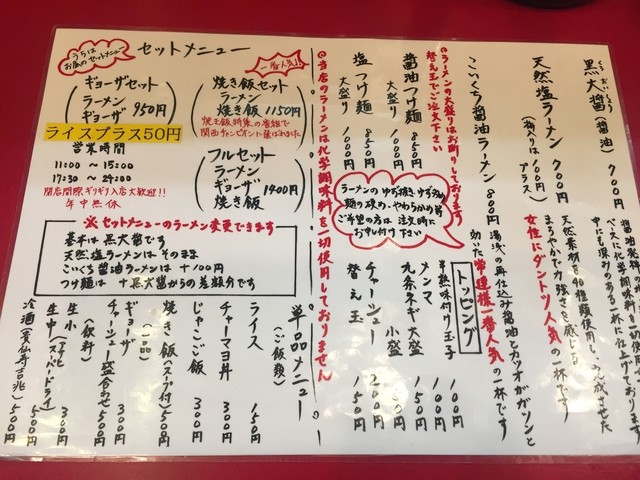 うちは
お昼のセットメニュー
セットメニュー
ギョーザセット
ラーメン
ギョーザ
950円
ライスプラス50円
一番人気!!
焼き飯セット
ラーメン
焼き飯
1150円
営業時間
11:00 ～ 15:00
17:30 ～ 24:00
閉店間際ギリギリ入店大歓迎!!
年中無休
フルセット
ラーメン
ギョーザ
焼き飯
1400円
※セットメニューのラーメン変更できます
基本は黒大醤です
天然塩ラーメンはそのまま
こいくち醤油ラーメンは +100円
つけ麺は +黒大醤からの差額分です
黒大醤(醤油) 700円
天然塩ラーメン 700円
(梅入りは 100円プラス)
天然素材を40種類使用し
まろやかで力強さを感じる一杯です
女性にダントツ人気
こいくち醤油ラーメン 800円
湯浅の再仕込み醤油とカツオがガツンと
効いた常連様一番人気の一杯です
◎ラーメンの大盛りはお断りしております
替え玉でご注文下さい
醤油つけ麺 850円
大盛り 1000円
塩つけ麺 850円
大盛り 1000円
◎当店のラーメンは化学調味料を一切使用しておりません
ラーメンのゆず抜き・ゆず多め
麺の硬め・やわらかめ等
ご希望の方は注文時に
お申し付け下さい
トッピング
半熟味付け玉子 100円
メンマ 100円
九条ネギ大盛
小盛
チャーシュー 200円
替え玉 150円
単品メニュー
(ご飯類)
ライス 150円
チャーマヨ丼 300円
じゃこご飯 300円
焼き飯(スープ付) 500円
(一品)
ギョーザ 300円
チャーシュー盛合わせ
(飲料)
生小
生中(スーパードライ) 500円
冷酒(貴仙寿吉兆) 500円